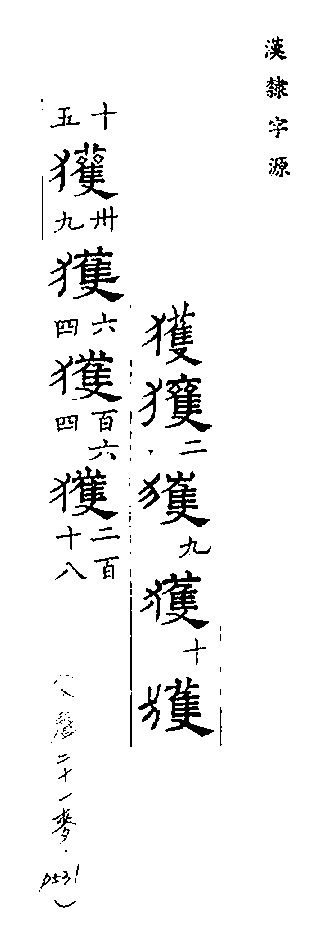 漢隸字源
獲獲二獲九獲十獲
十五獲卅九獲六四獲百六四獲二百十八
(入聲二十一麥.p531)